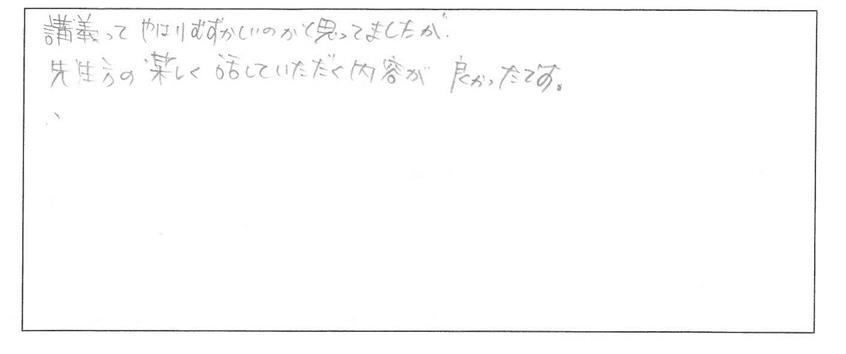 講義って やはりむずかしいのかと思ってましたが、
先生方の楽しく話していただく内容が 良かったです。
、